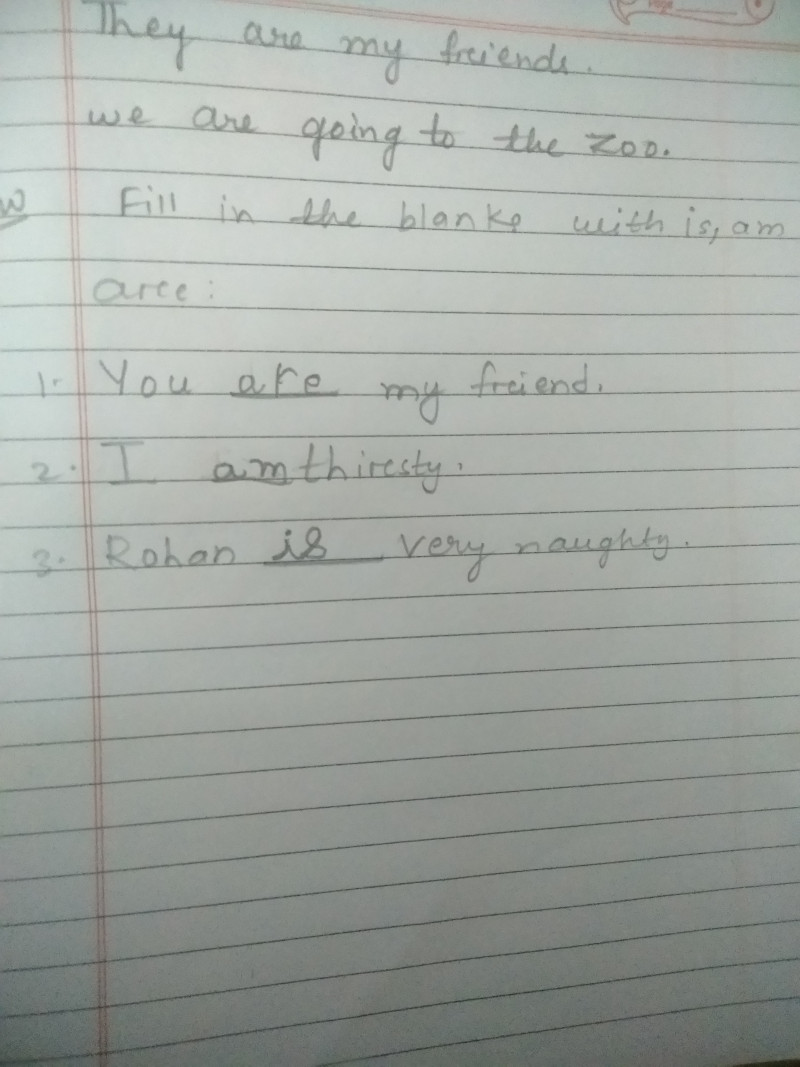 They are my friends.
we are going to the zoo.
W Fill in the blanks with is, am
are:
1. You are my friend.
2. I am thirsty.
3. Rohan is very naughty.